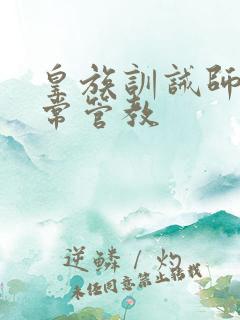 皇族訓誡師
常管教
逆鱗 / 灼
未经同意禁止转载